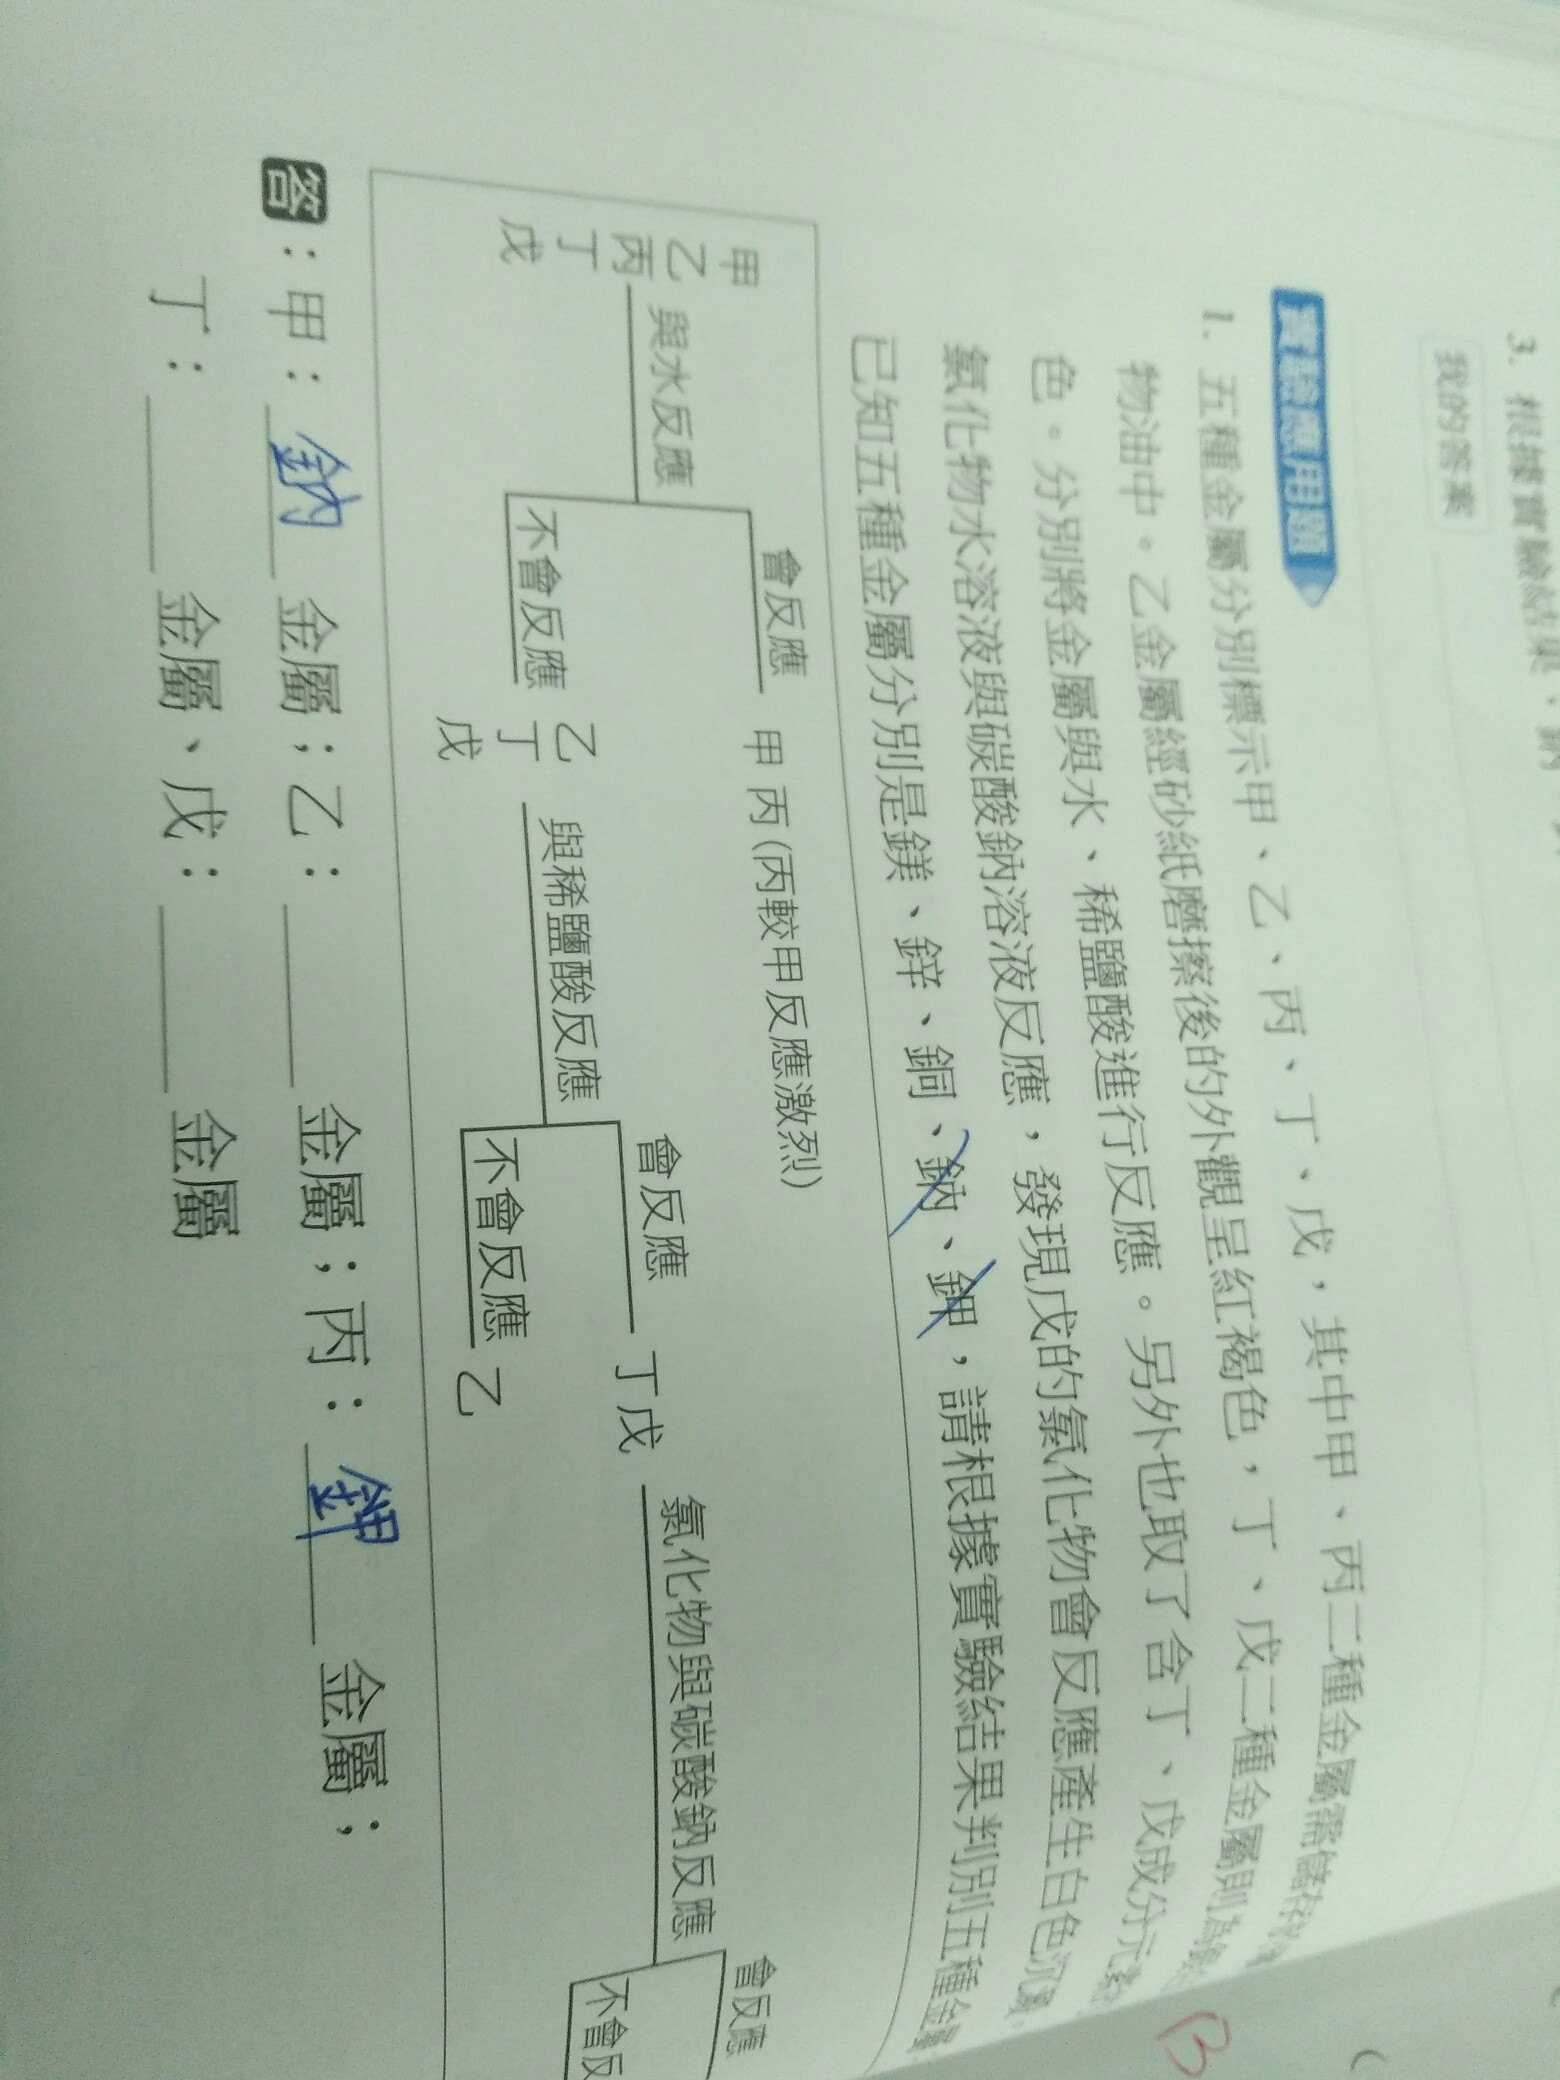 3. 根據實驗結果，鈉
我的答案
實驗應用題
1. 五種金屬分別標示甲、乙、丙、丁、戊，其中甲、丙二種金屬需儲存於
物油中。乙金屬經砂紙磨擦後的外觀呈紅褐色，丁、戊二種金屬則為
色。分別將金屬與水、稀鹽酸進行反應。另外也取了含丁、戊成分元素
氯化物水溶液與碳酸鈉溶液反應，發現戊的氯化物會反應產生白色沉澱。
已知五種金屬分別是鎂、鋅、銅、鈉、鉀，請根據實驗結果判別五種金屬
甲
乙
丙
丁
戊
與水反應
會反應
甲 丙 (丙較甲反應激烈)
不會反應
乙
丁
戊
與稀鹽酸反應
會反應
丁 戊
不會反應
乙
氯化物與碳酸鈉反應
會反應
不會反
答：甲：鈉 金屬；乙： 金屬；丙：鉀 金屬；
丁： 金屬、戊： 金屬
B